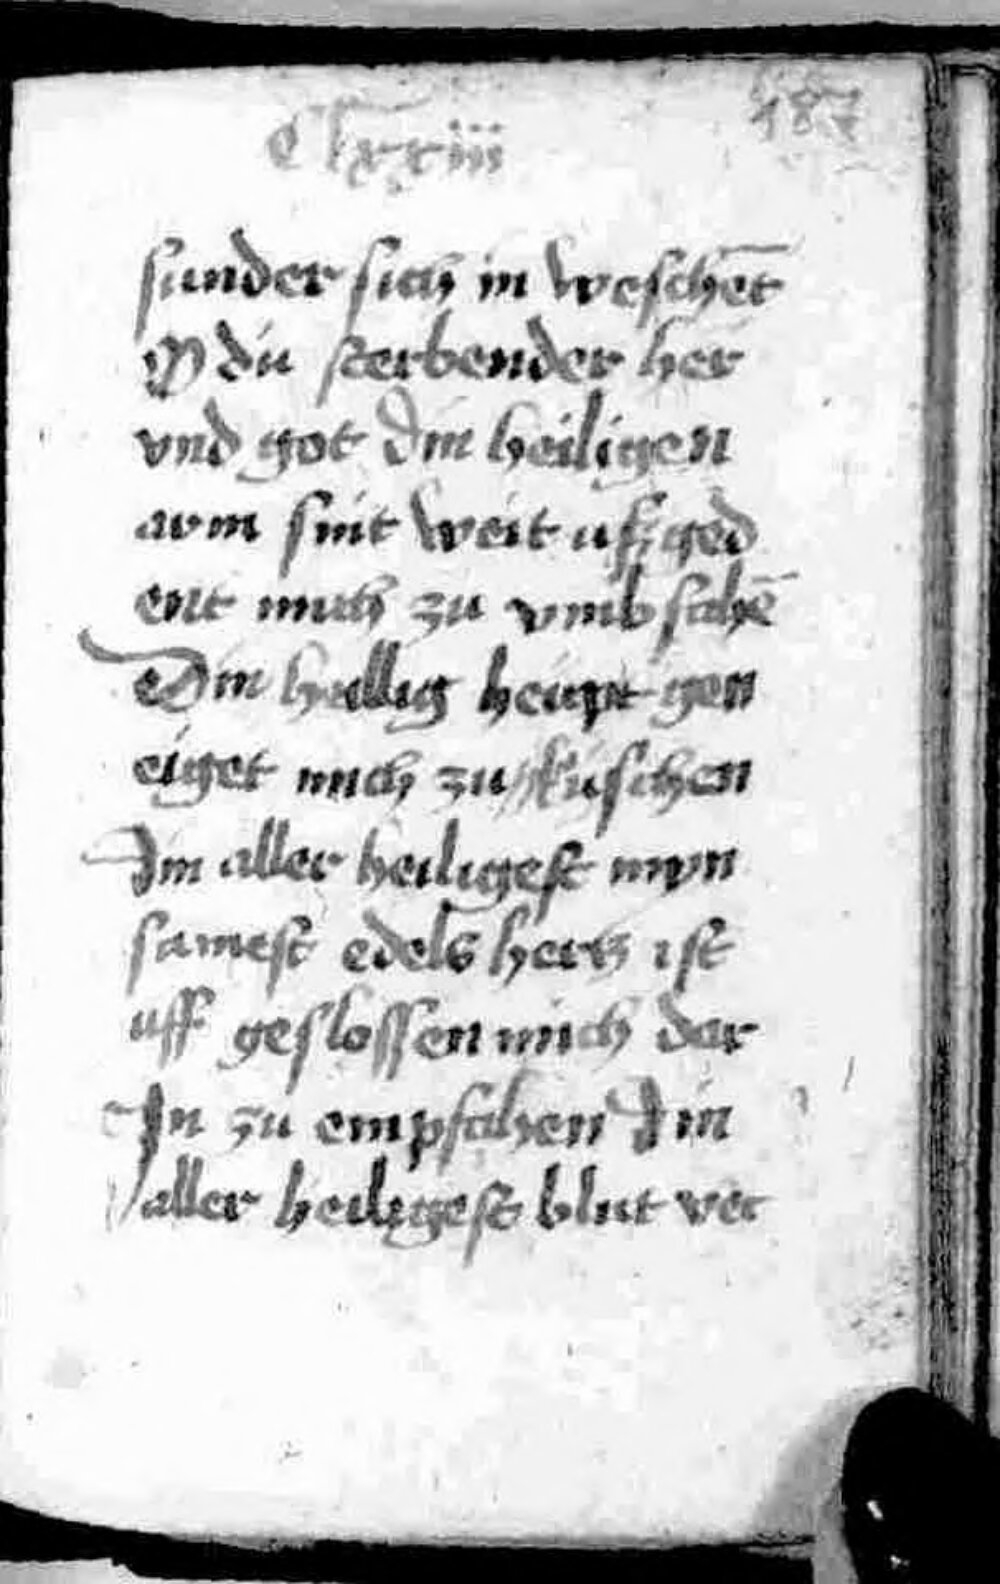 Clxxiii
sunder sich in weschēt
O dú sterbender her
vnd got din heiligen
arm sint weit ufged
ent mich zu vmbfahē
Din heillig heúpt gen
eiget mich zu kúschen
Din aller heiligest myn
samest edels hertz ist
uff geslossen mich dar
In zu empfahen Din
aller heiligest blut ver